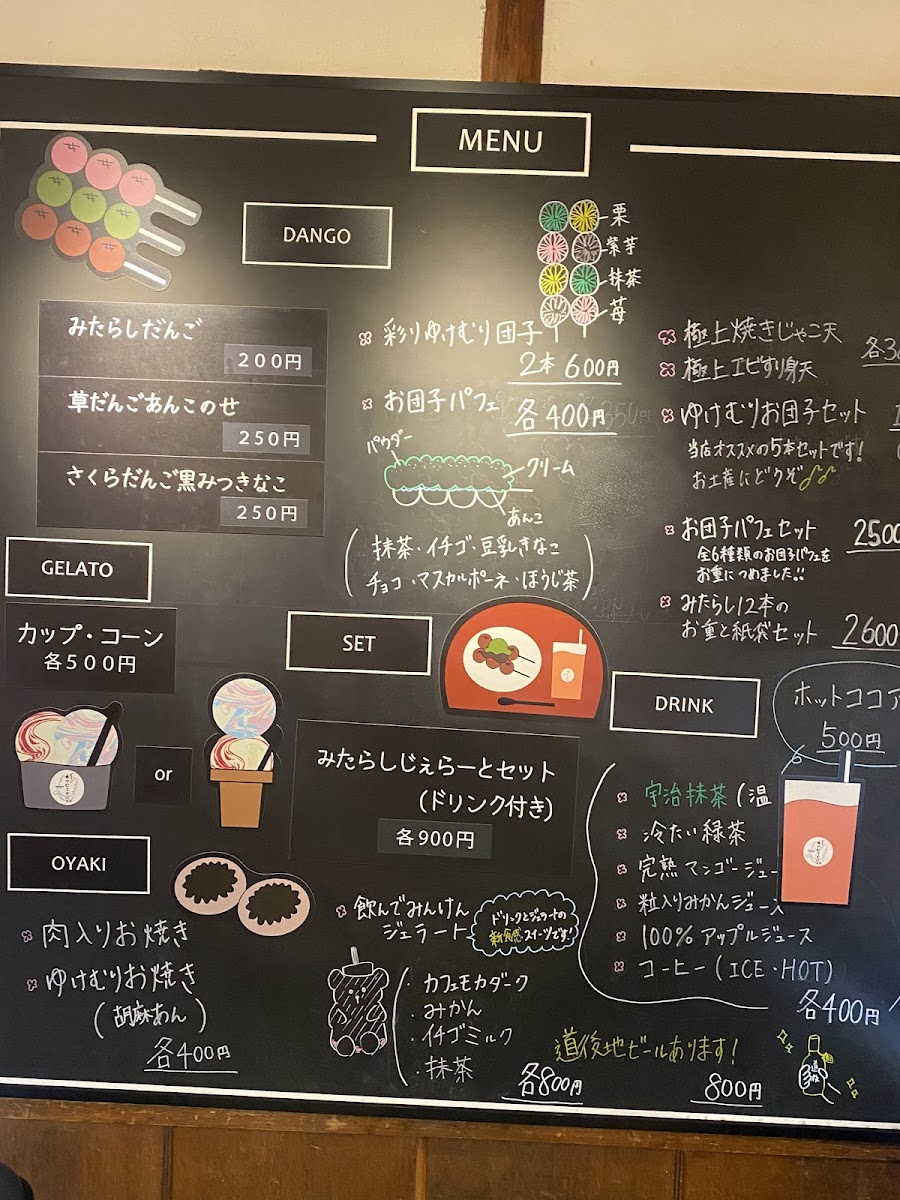 MENU
DANGO
みたらしだんご
200円
草だんごあんこのせ
250円
さくらだんご黒みつきなこ
250円
栗
紫芋
抹茶
苺
彩りゆけむり団子
2本 600円
お団子パフェ 各400円
パウダー
クリーム
あんこ
(抹茶・イチゴ・豆乳きなこ
チョコ・マスカルポーネ・ほうじ茶)
極上焼きじゃこ天
極上エビすり身天
各3
ゆけむりお団子セット
当店オススメの5本セットです!
お土産にどうぞ♪♪
お団子パフェセット 2500
全6種類のお団子パフェを
お重につめました!!
みたらし12本の
お重と紙袋セット 2600
GELATO
カップ・コーン
各500円
or
SET
みたらしじぇらーとセット
(ドリンク付き)
各900円
DRINK
ホットココア
500円
宇治抹茶(温
冷たい緑茶
完熟マンゴージュー
粒入りみかんジュース
100%アップルジュース
コーヒー(ICE・HOT)
各400円
OYAKI
肉入りお焼き
ゆけむりお焼き
(胡麻あん)
各400円
飲んでみんけん
ジェラート
ドリンクとジェラートの
新食感スイーツです!
・カフェモカダーク
・みかん
・イチゴミルク
・抹茶
各800円
道後地ビールあります!
800円